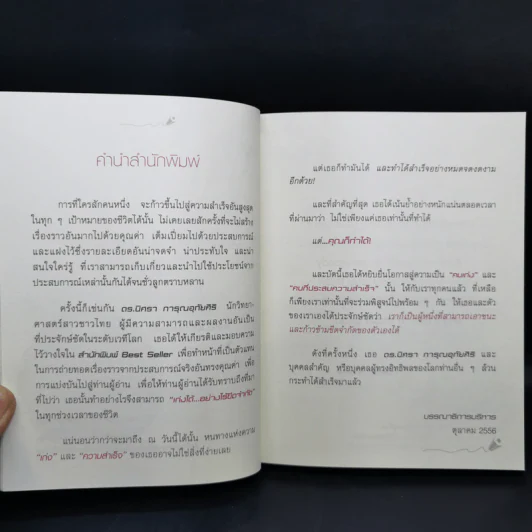 คำนำสำนักพิมพ์
การที่ใครสักคนหนึ่ง จะก้าวขึ้นไปสู่ความสำเร็จอันสูงสุด
ในทุก ๆ เป้าหมายของชีวิตได้นั้น ไม่เคยเลยสักครั้งที่จะไม่สร้าง
เรื่องราวอันมากไปด้วยคุณค่า เต็มเปี่ยมไปด้วยประสบการณ์
และแฝงไว้ซึ่งรายละเอียดอันน่าจดจำ น่าประทับใจ และน่า
สนใจใคร่รู้ ที่เราสามารถเก็บเกี่ยวและนำไปใช้ประโยชน์จาก
ประสบการณ์เหล่านั้นกันได้จนชั่วลูกตราบหลาน
ครั้งนี้ก็เช่นกัน ดร.นิศรา การุณอุทัยศิริ นักวิทยา-
ศาสตร์สาวชาวไทย ผู้มีความสามารถและผลงานอันเป็น
ที่ประจักษ์ชัดในระดับเวทีโลก เธอได้ให้เกียรติและมอบความ
ไว้วางใจใน สำนักพิมพ์ Best Seller เพื่อทำหน้าที่เป็นตัวแทน
ในการถ่ายทอดเรื่องราวจากประสบการณ์จริงอันทรงคุณค่า เพื่อ
การแบ่งปันไปสู่ท่านผู้อ่าน เพื่อให้ท่านผู้อ่านได้รับทราบถึงที่มา
ที่ไปว่า เธอนั้นทำอย่างไรจึงสามารถ "เก่งได้...อย่างไร้ขีดจำกัด"
ในทุกช่วงเวลาของชีวิต
แน่นอนว่ากว่าจะมาถึง ณ วันนี้ได้นั้น หนทางแห่งความ
"เก่ง" และ "ความสำเร็จ" ของเธออาจไม่ใช่สิ่งที่ง่ายเลย
แต่เธอก็ทำมันได้ และทำได้สำเร็จอย่างหมดจดงดงาม
อีกด้วย!
และที่สำคัญที่สุด เธอได้เน้นย้ำอย่างหนักแน่นตลอดเวลา
ที่ผ่านมาว่า ไม่ใช่เพียงแค่เธอเท่านั้นที่ทำได้
แต่...คุณก็ทำได้!
และบัดนี้เธอได้หยิบยื่นโอกาสสู่ความเป็น "คนเก่ง" และ
"คนที่ประสบความสำเร็จ" นั้น ให้กับเราทุกคนแล้ว ที่เหลือ
ก็เพียงเราเท่านั้นที่จะร่วมพิสูจน์ไปพร้อม ๆ กัน ให้เธอและตัว
ของเราเองได้ประจักษ์ชัดว่า เราก็เป็นผู้หนึ่งที่สามารถเอาชนะ
และก้าวข้ามขีดจำกัดของตัวเองได้
ดังที่ครั้งหนึ่ง เธอ ดร.นิศรา การุณอุทัยศิริ และ
บุคคลสำคัญ หรือบุคคลผู้ทรงอิทธิพลของโลกท่านอื่น ๆ ล้วน
กระทำได้สำเร็จมาแล้ว
บรรณาธิการบริหาร
ตุลาคม 2556